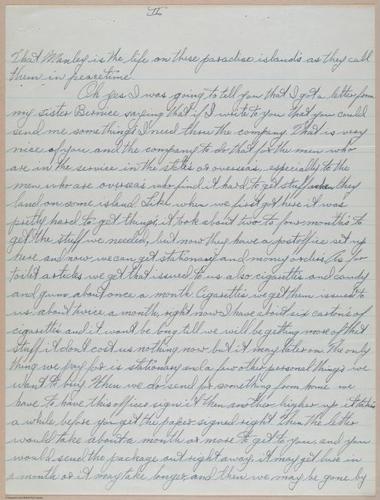 II
That Manley is the life on these paradise islands as they call
them in peacetime.
Oh yes I was going to tell you that I got a letter from
my sister Bernice saying that if I write to you that you could
send me some things I need thru the company. That is very
nice of you and the company to do that for the men who
are in the service in the states or overseas, especially to the
men who are overseas who find it hard to get stuff when they
land on some island. Like when we first got here it was
pretty hard to get things, it took about two to four months to
get the stuff we needed, but now they have a postoffice set up
here and now we can get stationary and money orders. As for
toilet articles we get that issued to us also cigarettes and candy
and gum about once a month. Cigarettes we get them issued to
us about twice a month, right now I have about six cartons of
cigarettes and it wont be long till we will be getting more of that
stuff it dont cost us nothing now but it may later on. The only
thing we pay for is stationary and a few other personal things we
want to buy. When we do send for something from home we
have to have this officer sign it then another higher up it takes
a while before you get the paper signed right. Then the letter
would take about a month or more to get to you, and you
would send the package out right away, it may get here in
a month or it may take longer and then we may be gone by